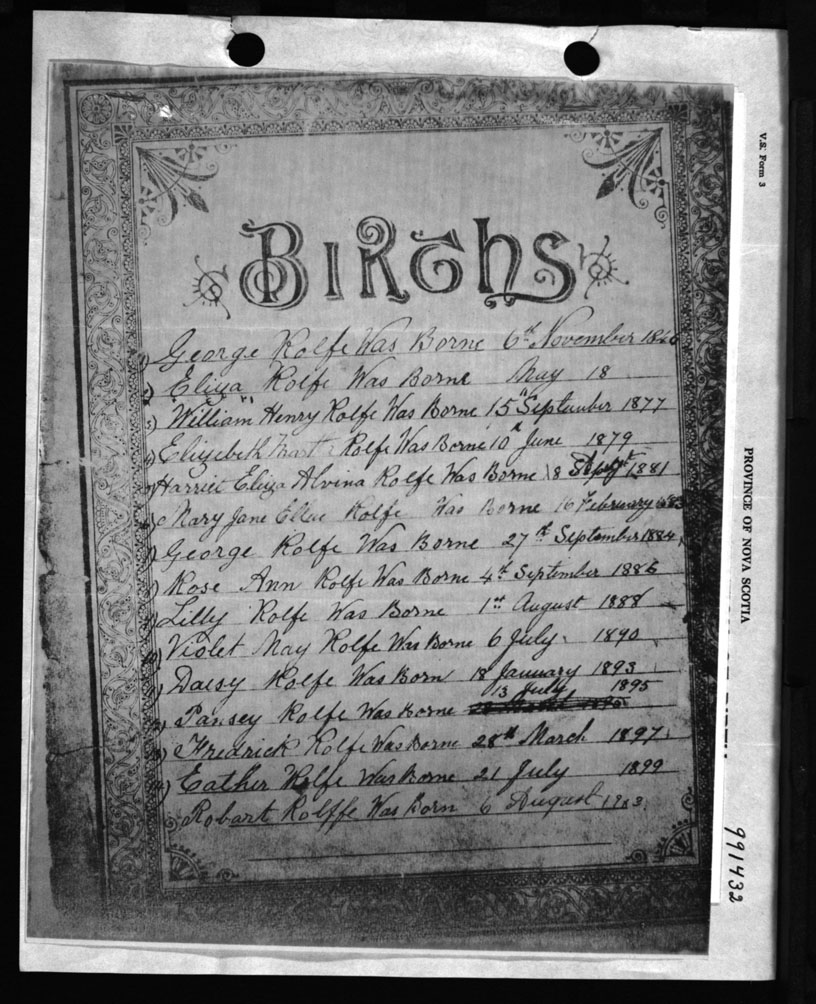 BIRTHS
1) George Rolfe Was Borne 6th November
2) Eliza Rolfe Was Borne May 18
3) William Henry Rolfe Was Borne 15th September 1877
4) Elizebeth Rolfe Was Borne 10th June 1879
Harriet Eliza Alvina Rolfe Was Borne 18 1881
Mary Jane Ellen Rolfe Was Borne 16th February 1883
George Rolfe Was Borne 27th September 1884
Rose Ann Rolfe Was Borne 4th September 1886
Lilly Rolfe Was Borne 1st August 1888
10) Violet May Rolfe Was Borne 6 July 1890
Daisy Rolfe Was Born 18 January 1893
13 July 1895
Pansey Rolfe Was Borne
Fredrick Rolfe Was Borne 28th March 1897
Eather Rolfe Was Borne 21 July 1899
Robart Rolffe Was Born 6 August
V.S. Form 3
PROVINCE OF NOVA SCOTIA
991432